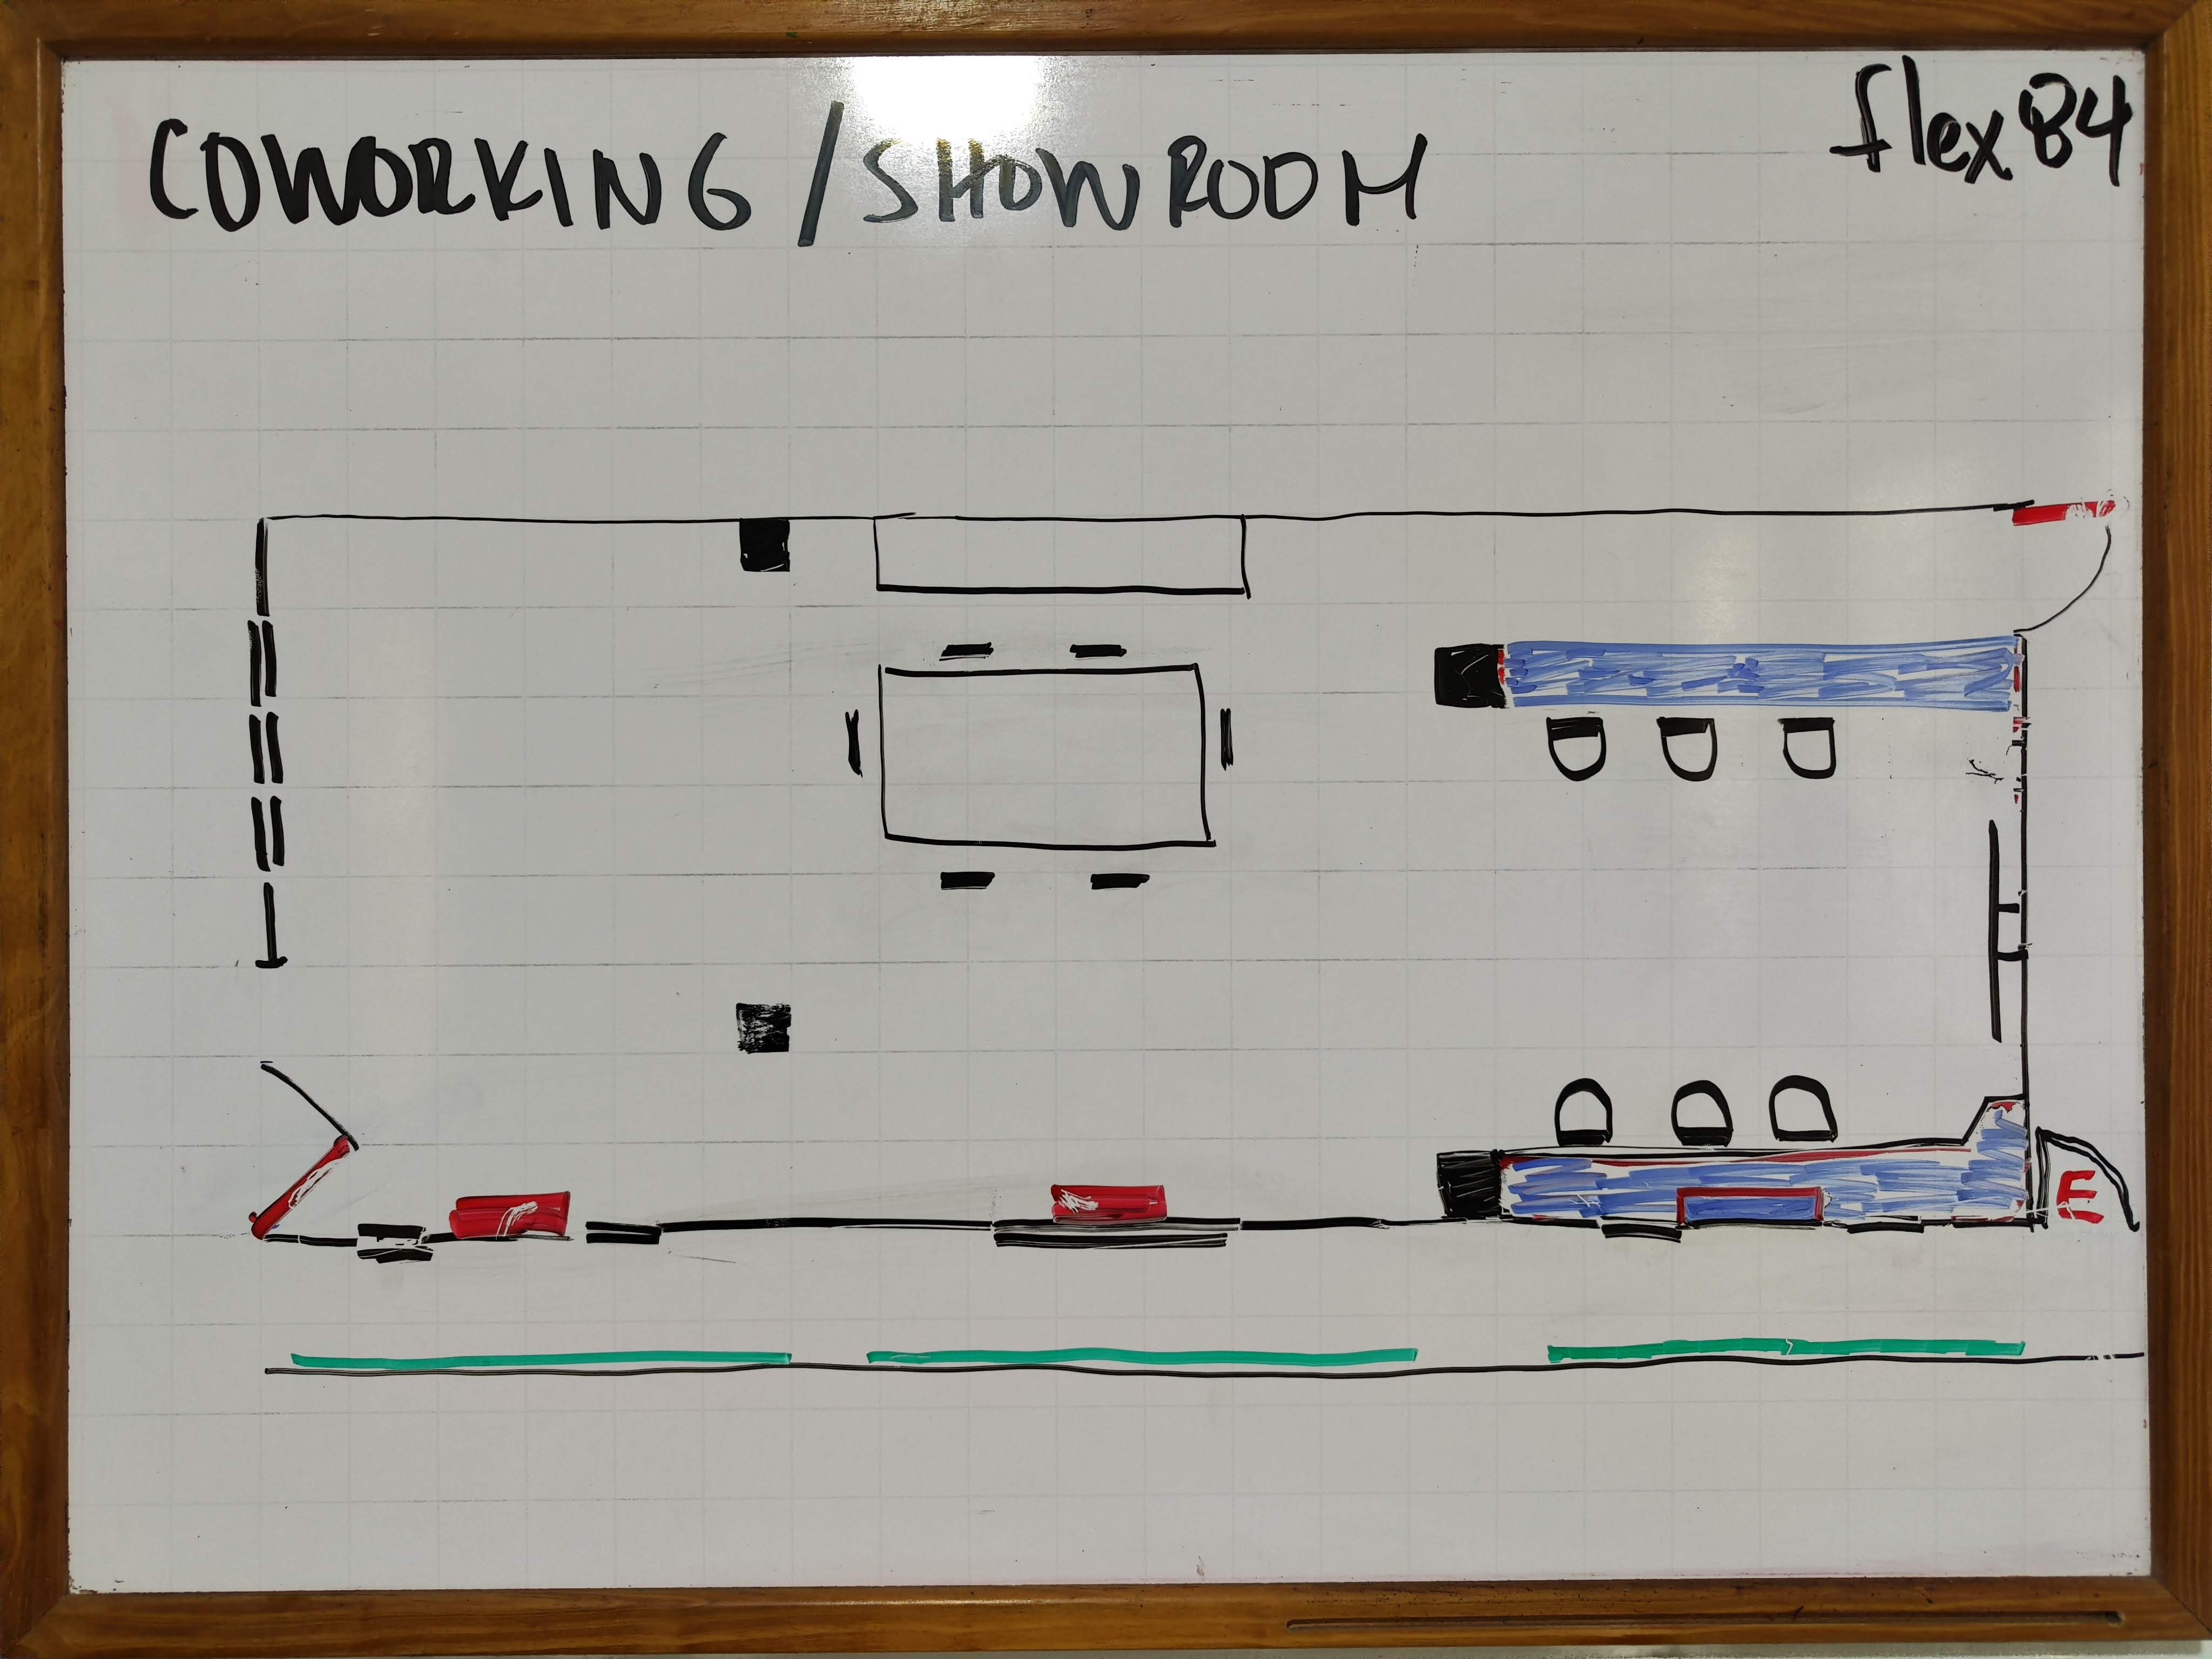 COWORKING / SHOWROOM
flex84
E